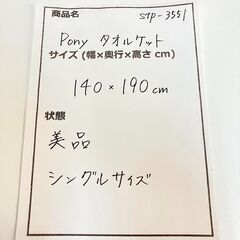 商品名 STP-3551
Pony タオルケット
サイズ (幅×奥行×高さ cm)
140 × 190cm
状態
美品
シングルサイズ